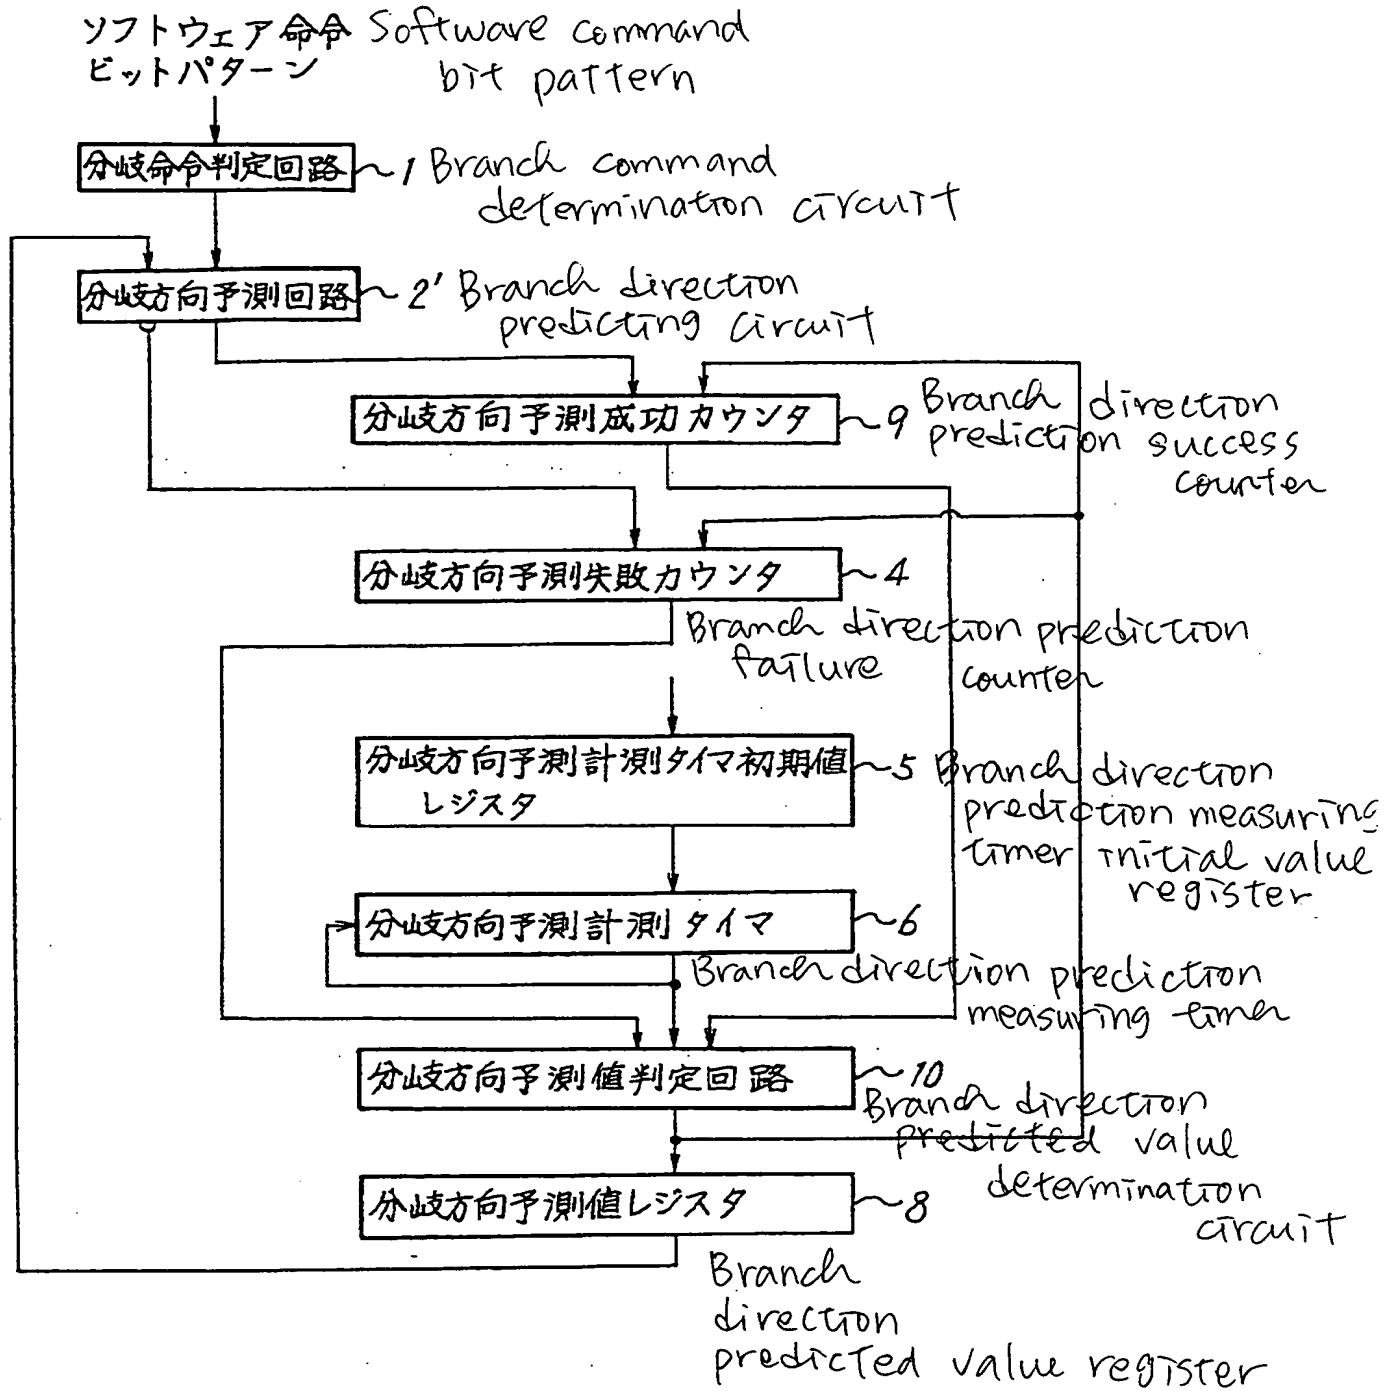 ソフトウェア命令 Software command
ビットパターン bit pattern
分岐命令判定回路 1 Branch command
determination circuit
分岐方向予測回路 2' Branch direction
predicting circuit
分岐方向予測成功カウンタ 9 Branch direction
prediction success
counter
分岐方向予測失敗カウンタ 4
Branch direction prediction
failure counter
分岐方向予測計測タイマ初期値 5 Branch direction
レジスタ prediction measuring
timer initial value
register
分岐方向予測計測タイマ 6
Branch direction prediction
measuring timer
分岐方向予測値判定回路 10
Branch direction
predicted value
determination
circuit
分岐方向予測値レジスタ 8
Branch
direction
predicted value register